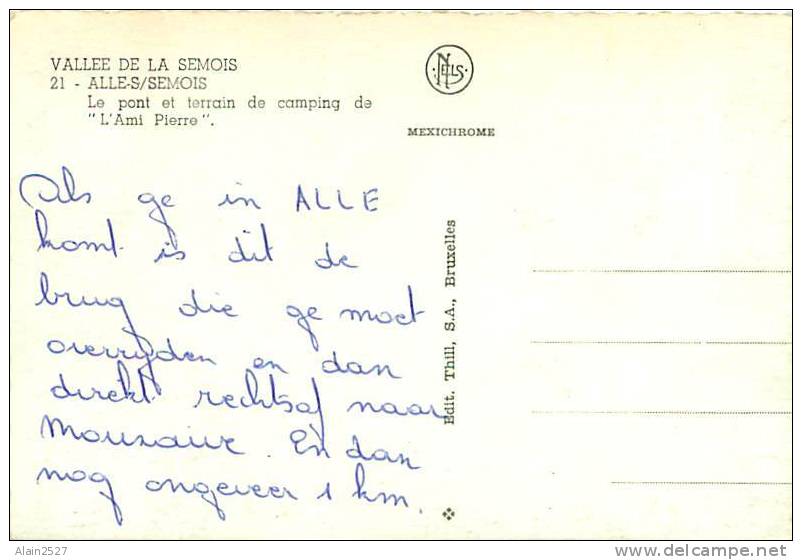 VALLEE DE LA SEMOIS
21 - ALLE-S/SEMOIS
Le pont et terrain de camping de
"L'Ami Pierre".
NELS
MEXICHROME
Als ge in ALLE
komt is dit de
brug die ge moet
overryden en dan
direkt rechtsaf naar
Mouzaive. En dan
nog ongeveer 1 km.
Edit. Thill, S.A., Bruxelles
Alain2527
www.delcampe.net